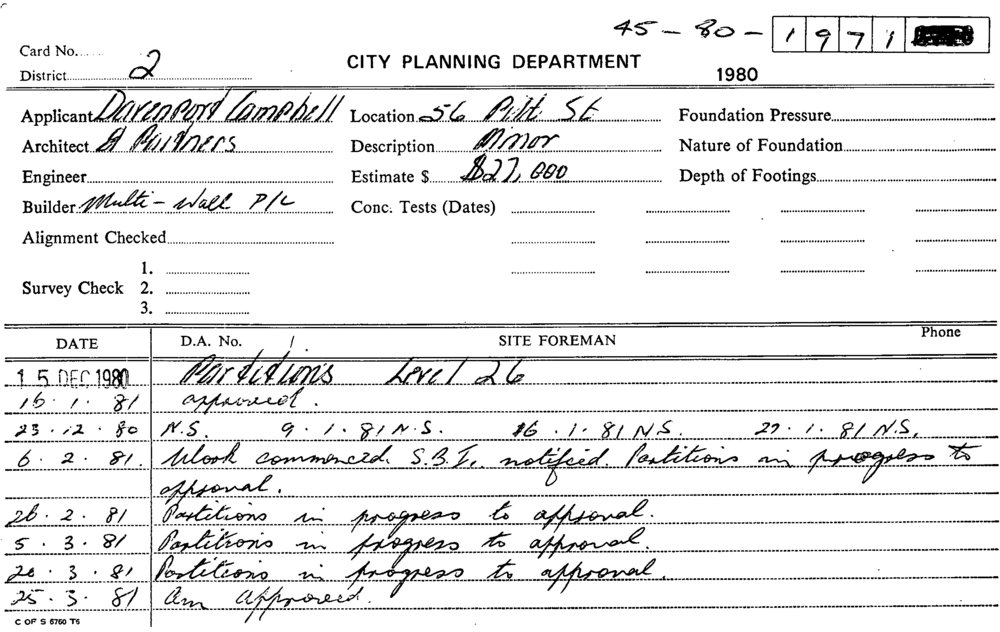 45 - 80 - 1971
Card No.
District 2
CITY PLANNING DEPARTMENT
1980
Applicant Davenport Campbell Location 56 Pitt St Foundation Pressure
Architect & Partners Description Minor Nature of Foundation
Engineer Estimate $ $27,000 Depth of Footings
Builder Multi-Wall P/L Conc. Tests (Dates)
Alignment Checked
1.
Survey Check 2.
3.
DATE D.A. No. / SITE FOREMAN Phone
15 DEC 1980 Partitions Level 26
16.1.81 approved.
23.12.80 N.S. 9.1.81 N.S. 16.1.81 N.S. 27.1.81 N.S.
6.2.81. Work commenced. S.B.I. notifeid. Partitions in progress to
approval.
26.2.81 Partitions in progress to approval.
5.3.81 Partitions in progress to approval.
20.3.81 Partitions in progress to approval.
25.3.81 Am Approved.
C OF S 6760 T6